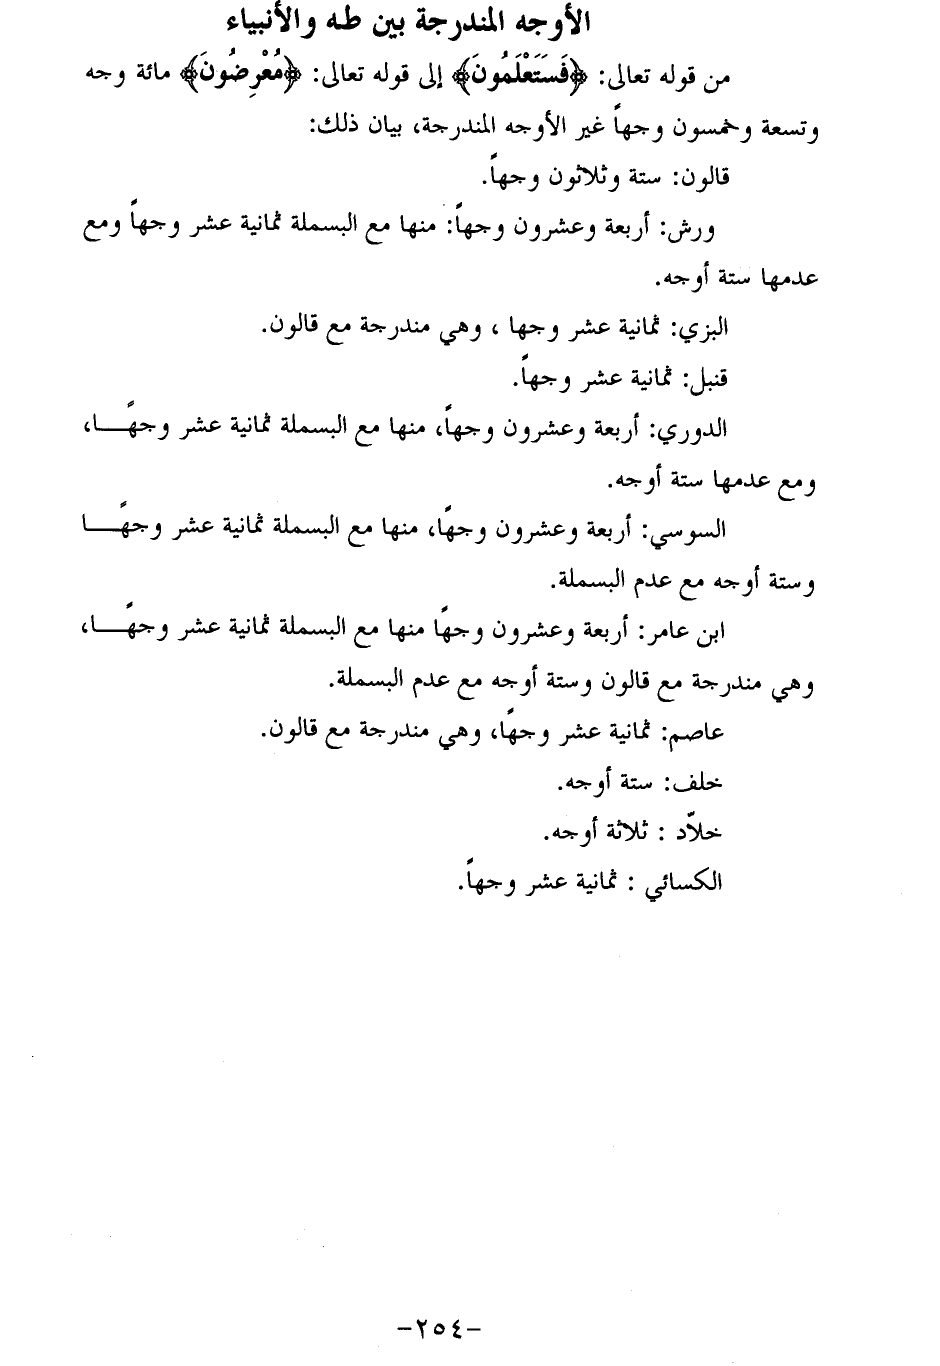 الأوجه المندرجة بين طه والأنبياء
من قوله تعالى: ﴿فَسَتَعْلَمُونَ﴾ إلى قوله تعالى: ﴿مُعْرِضُونَ﴾ مائة وجه
وتسعة وخمسون وجهاً غير الأوجه المندرجة، بيان ذلك:
قالون: ستة وثلاثون وجهاً.
ورش: أربعة وعشرون وجهاً: منها مع البسملة ثمانية عشر وجهاً ومع
عدمها ستة أوجه.
البزي: ثمانية عشر وجها ، وهي مندرجة مع قالون.
قنبل: ثمانية عشر وجهاً.
الدوري: أربعة وعشرون وجهاً، منها مع البسملة ثمانية عشر وجهًــا،
ومع عدمها ستة أوجه.
السوسي: أربعة وعشرون وجهًا، منها مع البسملة ثمانية عشر وجهًــا
وستة أوجه مع عدم البسملة.
ابن عامر: أربعة وعشرون وجهًا منها مع البسملة ثمانية عشر وجهًــا،
وهي مندرجة مع قالون وستة أوجه مع عدم البسملة.
عاصم: ثمانية عشر وجهًا، وهي مندرجة مع قالون.
خلف: ستة أوجه.
خلاّد : ثلاثة أوجه.
الكسائي : ثمانية عشر وجهاً.
-٢٥٤-